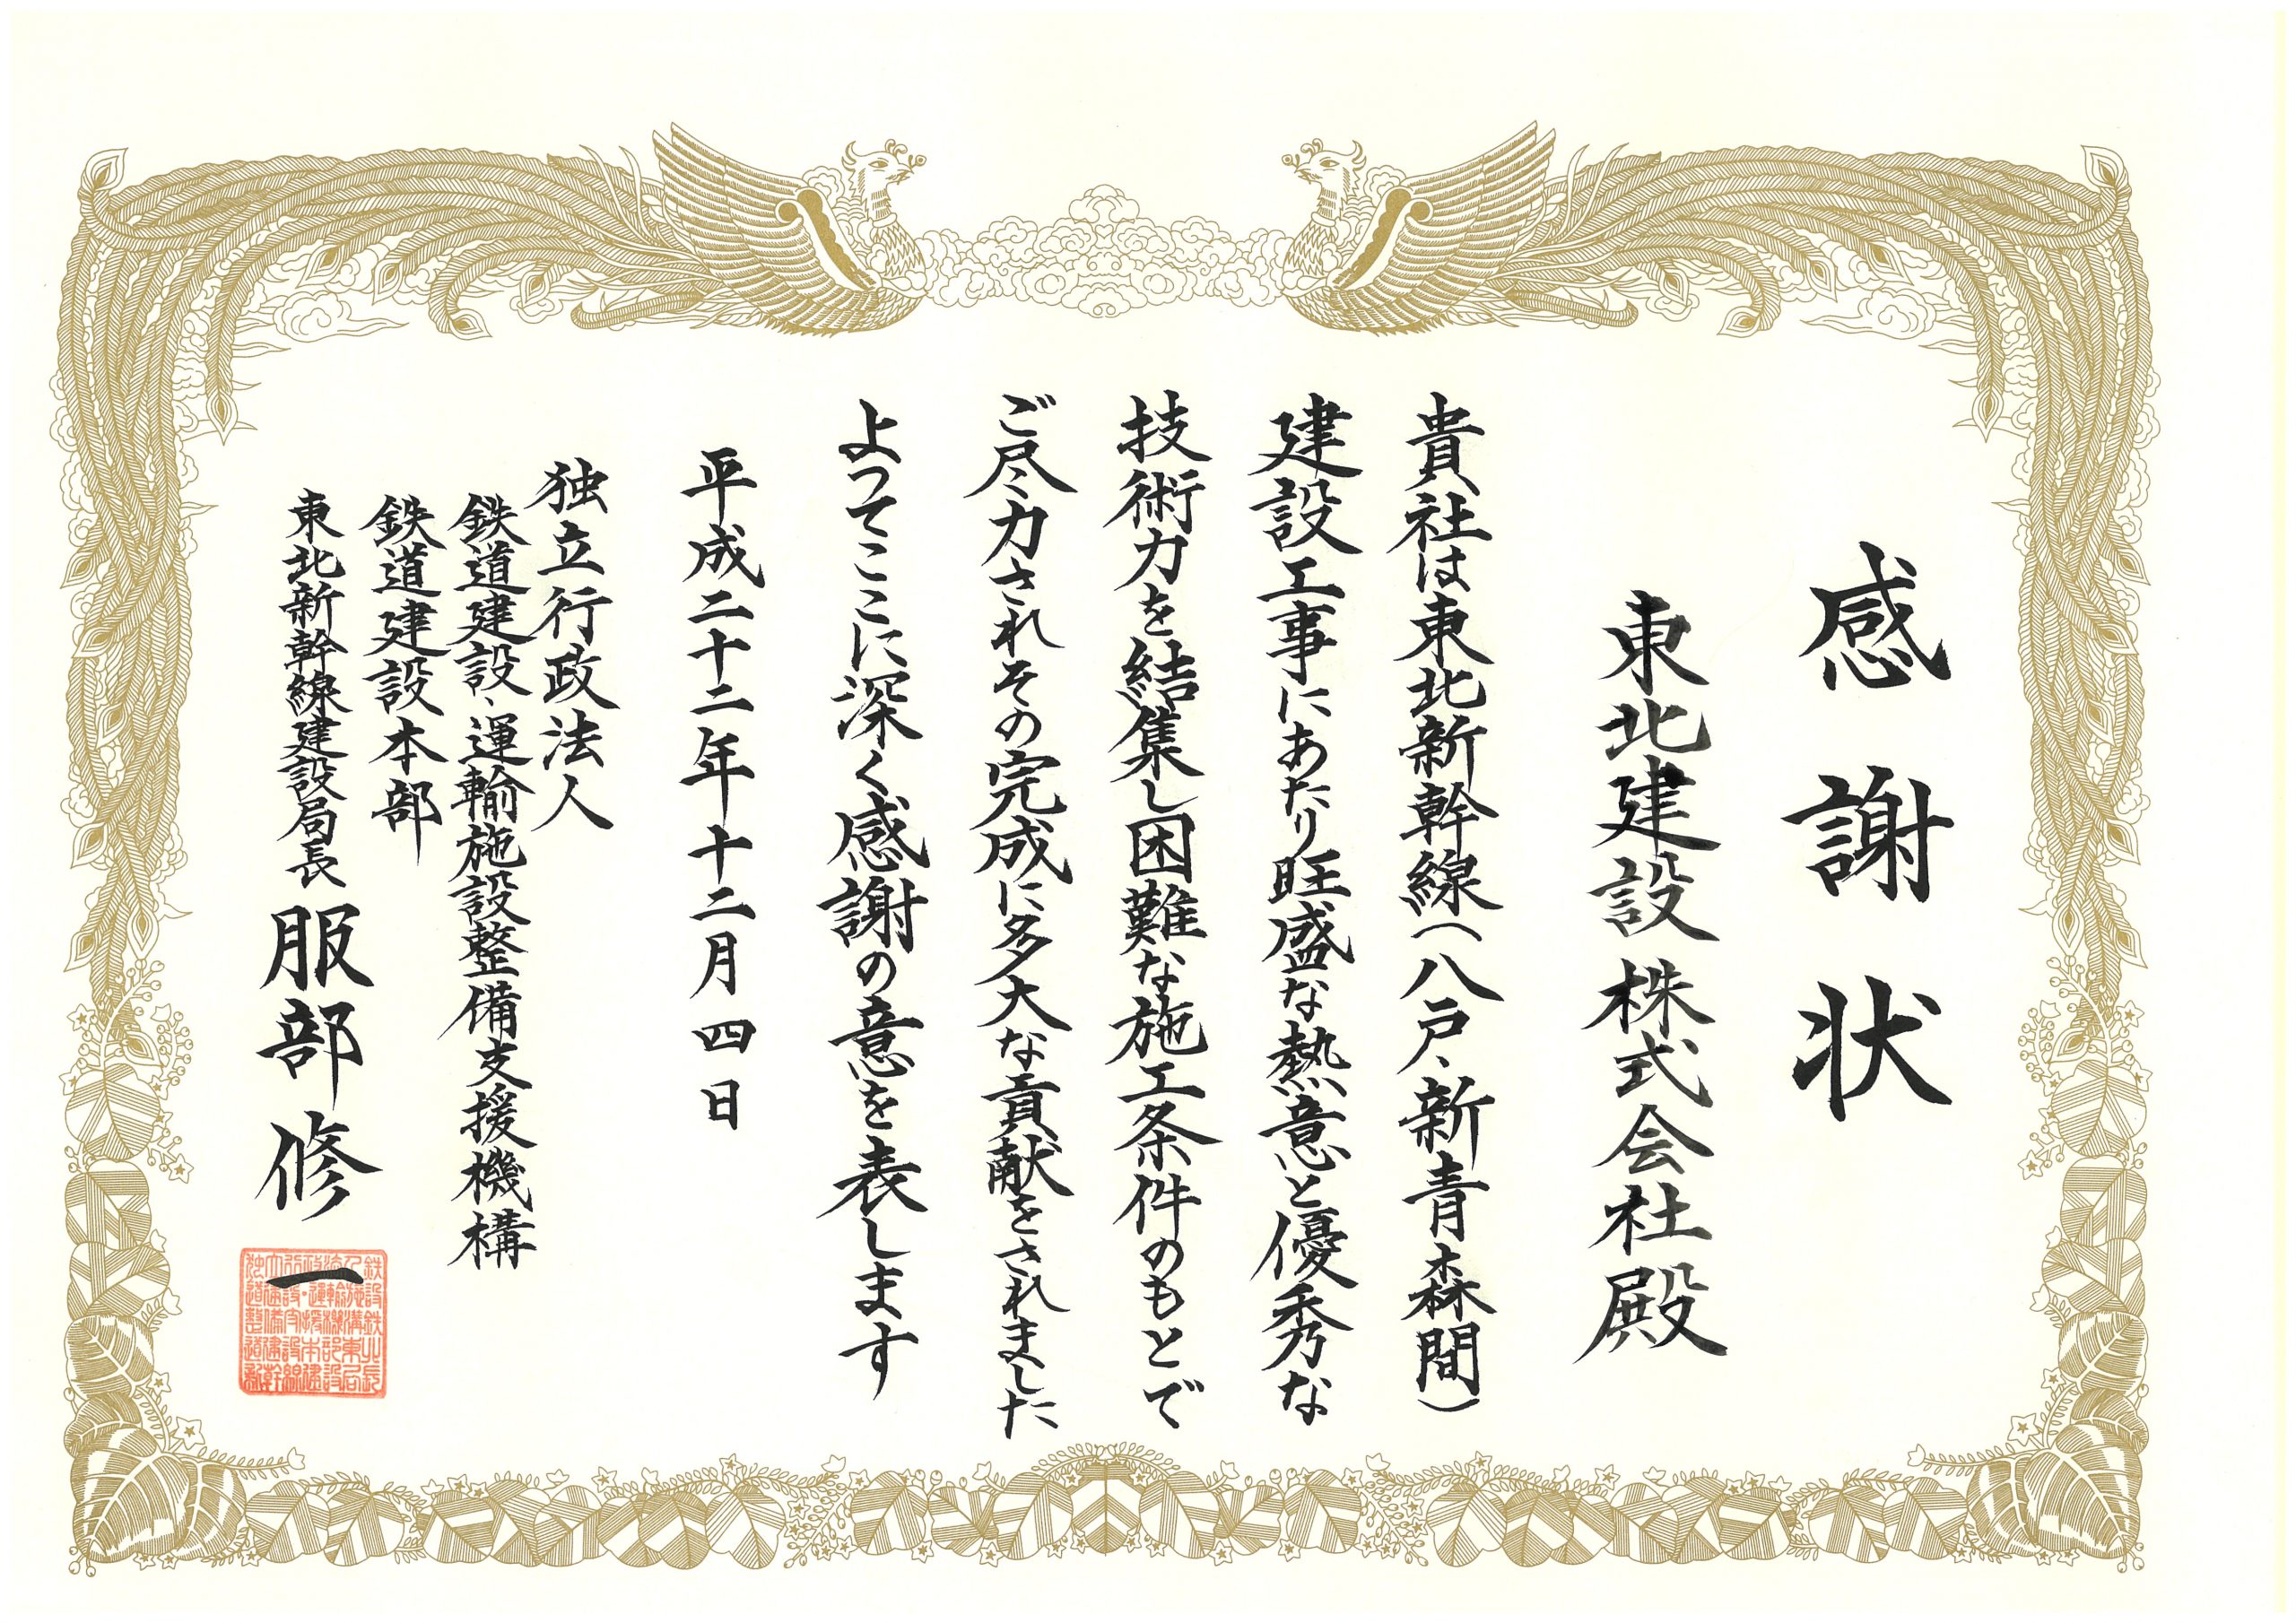 感謝状
東北建設株式会社殿
貴社は東北新幹線(八戸・新青森間)
建設工事にあたり旺盛な熱意と優秀な
技術力を結集し困難な施工条件のもとで
ご尽力されその完成に多大な貢献をされました
よってここに深く感謝の意を表します
平成二十二年十二月四日
独立行政法人
鉄道建設・運輸施設整備支援機構
鉄道建設本部
東北新幹線建設局長 服部修一